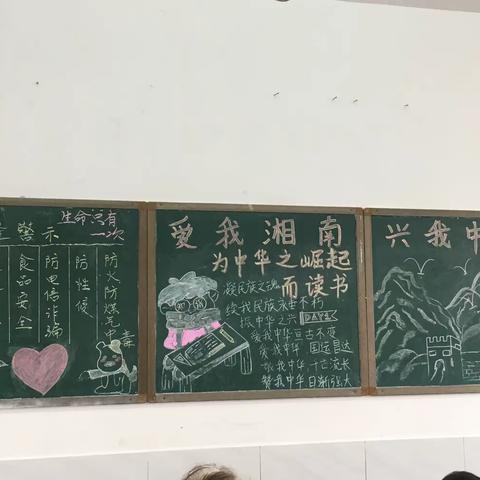 警示
生命只有
一次
食品安全
防电信诈骗
防性侵
防火防煤气中毒
爱我湘南
为中华之崛起
而读书
凝民族之魂
绞我民族永垂不朽
振中华之兴
DAYS
爱我中华亘古不变
爱我中华 国运昌达
旅我中华 十亡流长
赞我中华 日渐强大
兴我中